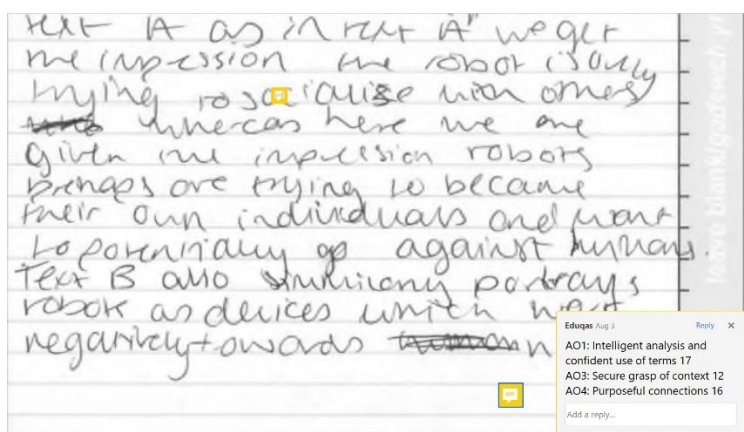 text A as in text A" we get
the impression the robot is only
trying to socialise with others
whereas here we are
given the impression robots
perhaps are trying to become
their own individuals and want
to potentially go against humans.
Text B also similarly portrays
robots as devices which
negatively towards
leave blank/gadewch yn
Eduqas Aug 3 Reply X
AO1: Intelligent analysis and
confident use of terms 17
AO3: Secure grasp of context 12
AO4: Purposeful connections 16
Add a reply...